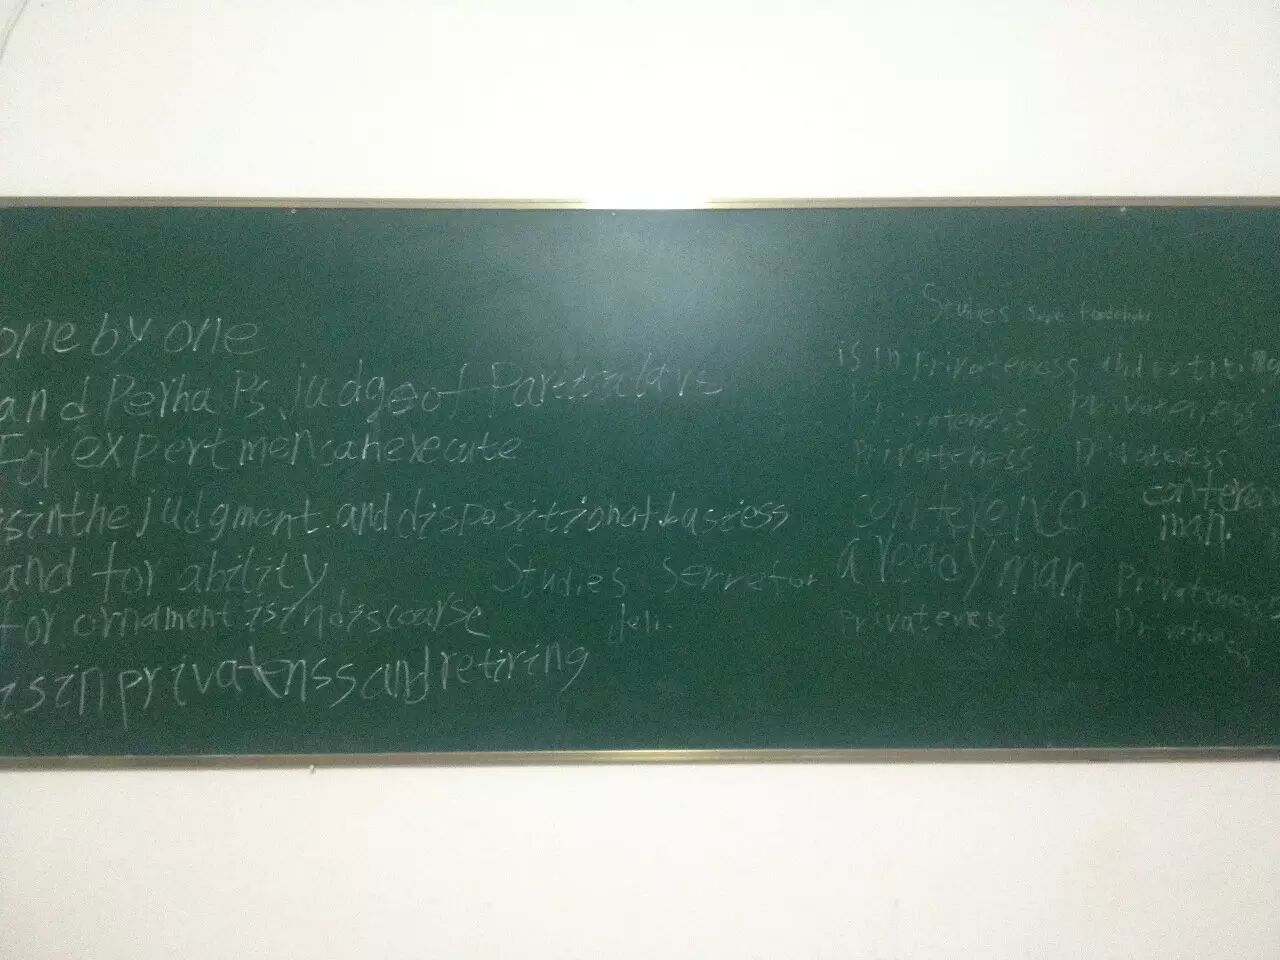 one by one
and Perhaps judge of Particulars
For expert men can execute
isinthe judgment. and dispositionof.basiess
and for ability
for ornament isindiscourse
isinprivatenssandretiring
Studies Serrefor
deli.
Studies
is in Privateness
Privateness
Privateness Privateness
conference
a ready man
privateness
conferen
man.
Privateness